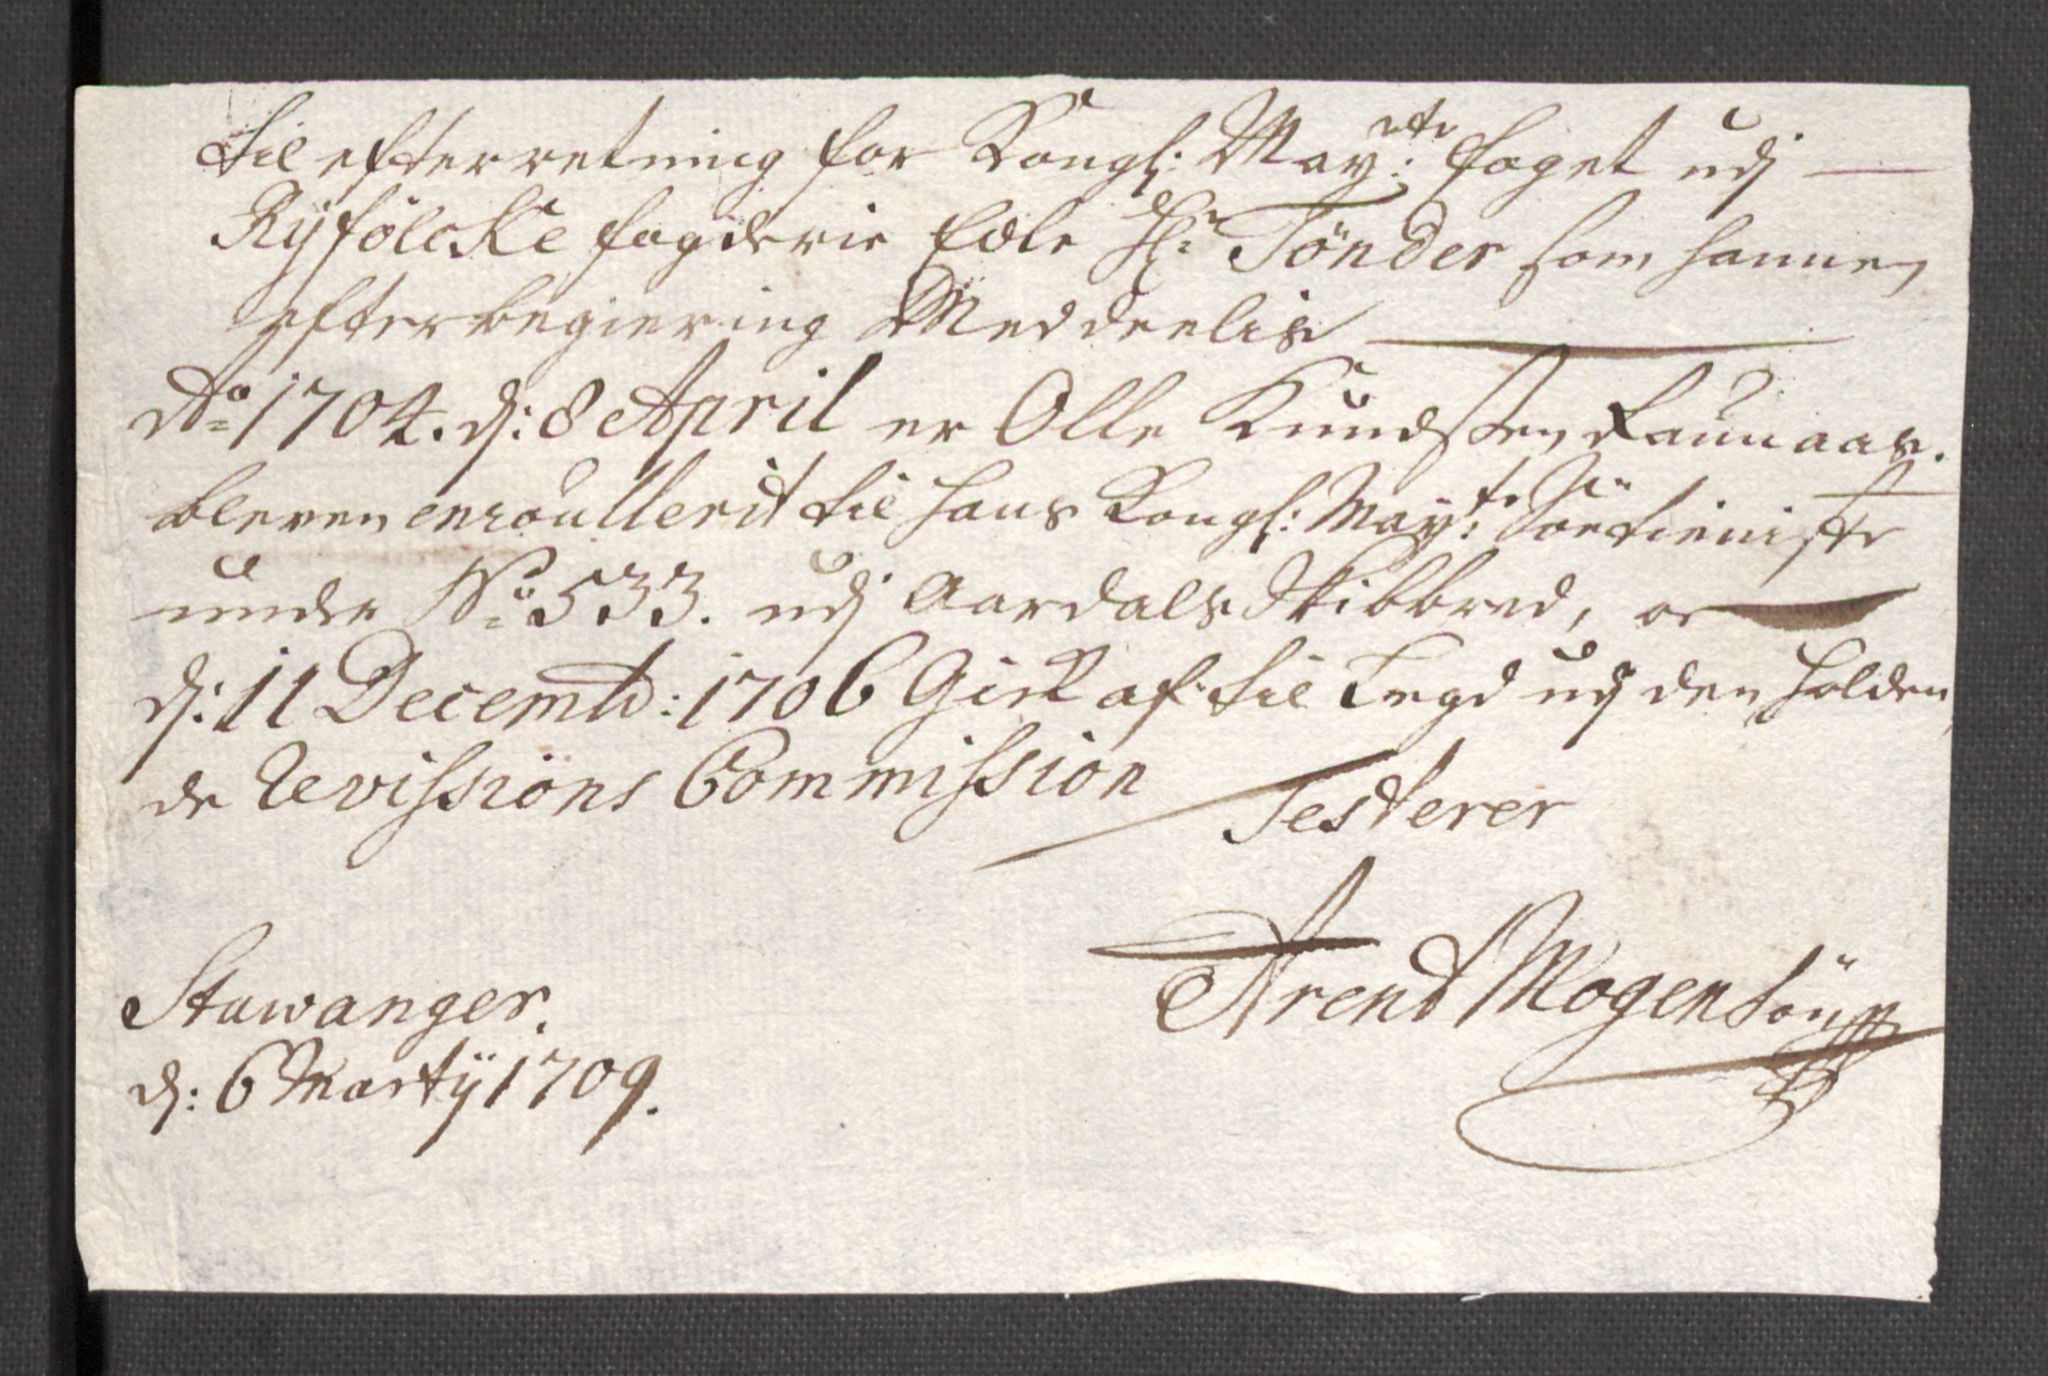 Til efterretning for Kongl: May:tts foget udj
Ryfölcke fogderie Edle Hr: Tönder som hannem
efter begiering Meddeelis
Ao 1704. dj: 8 April er Olle Knudsen Raunaas.
bleven enroullerit til Hans Kongl: May:ts Söetieniste
under No: 533. udj Aardals Skibbred, oc
dj: 11 Decembr: 1706 Gik af til Legd udj den holden,
de Revissions Commission
Testerer
Arend Mogensön
Stawanger.
dj: 6 Martij 1709.